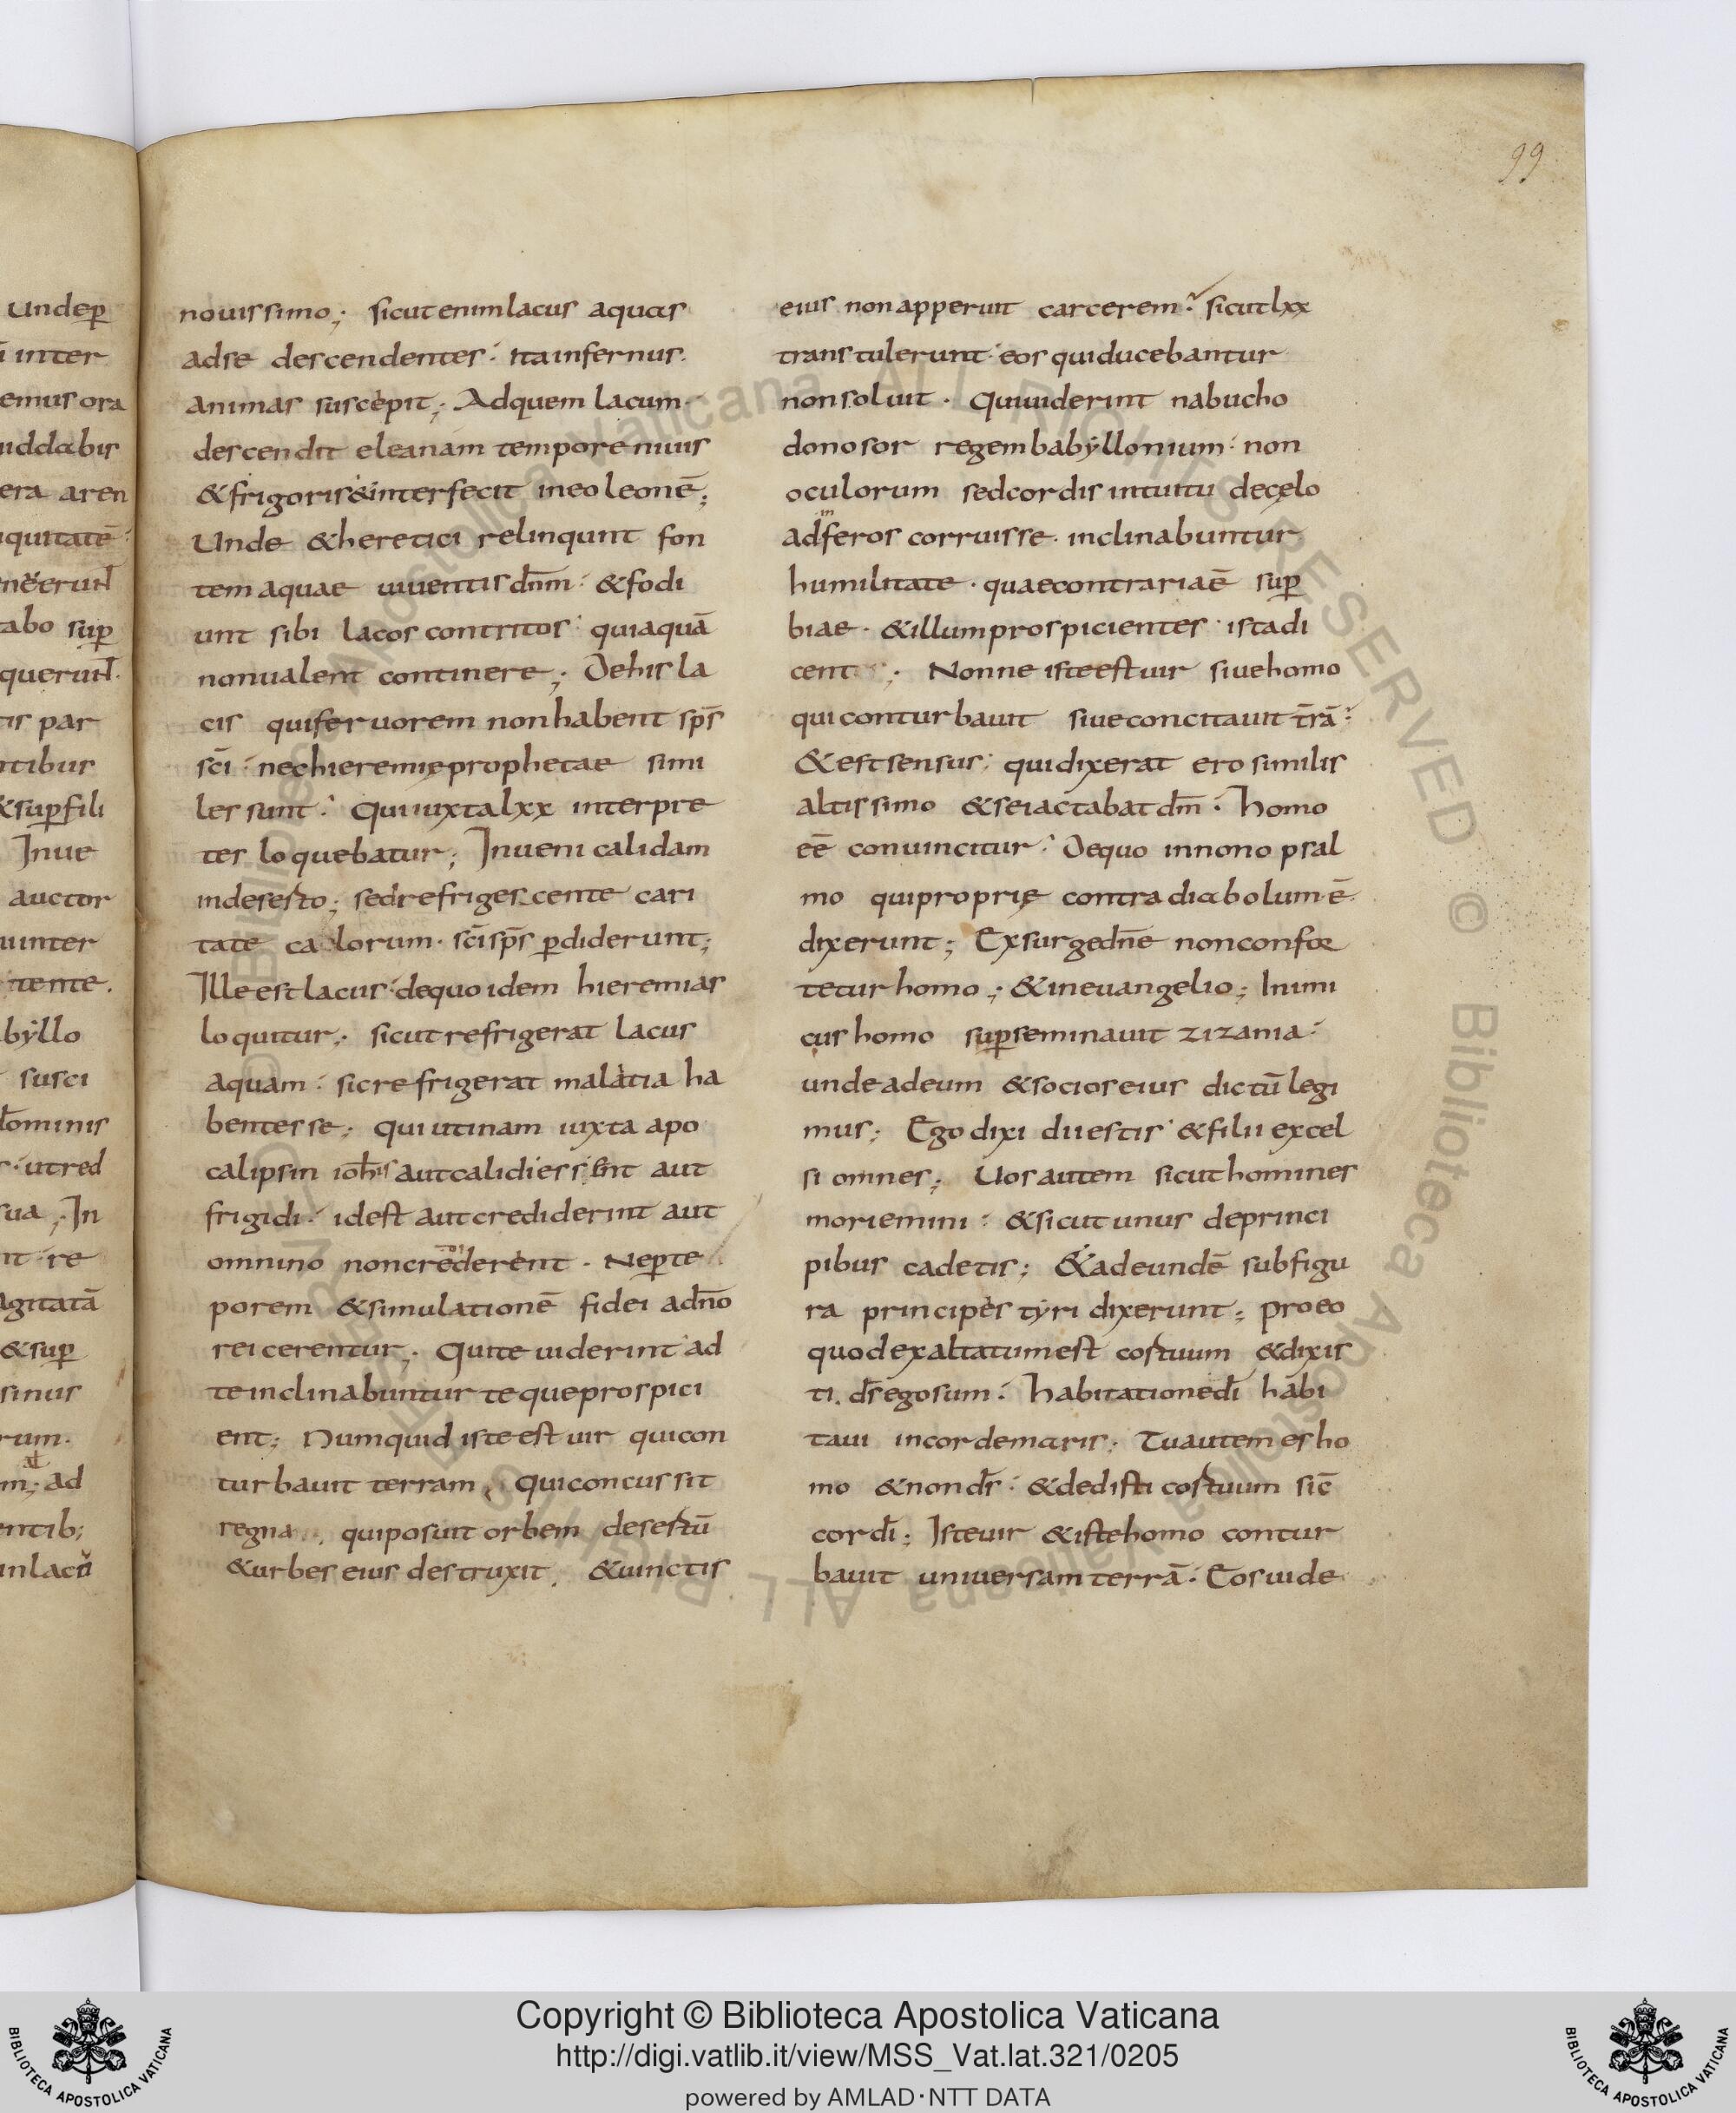 99
undep̲
inter
emus ora
uiddabis
era aren
iquitatē
nererunt
tabo sup̲
querunt.
tis par
ntibus
&sup̲fili
Inue
auctor
uinter
tente.
byllo
susci
dominis
utred
sua; In
re
agitatā
&sup̲
sinus
rum.
m; ad
entib;
inlacū
nouissimo; sicut enim lacus aquas
adse descendentes; ita infernus.
animas suscepit; Adquem lacum
descendit eleanam tempore niuis
&frigoris &interfecit ineo leonē;
Unde &heretici relinqunt fon
tem aquae uiuentis dn̄m; &fodi
unt sibi lacos contritos; quia quā
non ualent continere; De his la
cis qui feruorem non habent sp̄s
sc̄i; nec hieremię prophetae simi
les sunt; Qui iuxta lxx interpre
tes loquebatur; Inueni calidam
indeserto; sed refrigescente cari
tate calorum. sc̄i sp̄s p̲diderunt;
Ille est lacus; de quo idem hieremias
loquitur; sicut refrigerat lacus
aquam; sic refrigerat malatia ha
bentes se; qui utinam iuxta apo
calipsin ioh̄is aut calidi essent aut
frigidi; id est aut crediderint aut
omnino non crederent. Nep̲ te
porem &simulationē fidei adn̄o
reicerentur; Qui te uiderint ad
te inclinabuntur teque prospici
ent; Numquid iste est uir qui con
turbauit terram, qui concussit
regna, qui posuit orbem desertū
&urbes eius destruxit, &uinctis
eius non apperuit carcerem; sicut lxx
transtulerunt; eos qui ducebantur
non soluit. Qui uiderint nabucho
donosor regem babyllonium; non
oculorum sed cordis intuitu decęlo
ad inferos corruisse. inclinabuntur
humilitate. quae contraria ē sup̲
biae. &illum prospicientes; ista di
cent; Nonne iste est uir siue homo
qui conturbauit siue concitauit t̄rā;
&est sensus; qui dixerat ero similis
altissimo &se iactabat dm̄; homo
eē conuincitur; De quo in nono psal
mo qui proprię contra diabolum ē
dixerunt; Exsurge dn̄e non confor
tetur homo; &in euangelio; Inimi
cus homo sup̲seminauit zizania;
unde ad eum &socios eius dictū legi
mus; Ego dixi dii estis &filii excel
si omnes; Uos autem sicut homines
moriemini; &sicut unus deprinci
pibus cadetis; &ad eundē sub figu
ra principes tyri dixerunt; pro eo
quod exaltatum est cor tuum &dixis
ti. dr̄ ego sum; habitatione di habi
taui in corde maris; Tu autem es ho
mo &non ds; &dedisti cor tuum sic̄
cor di; Iste uir &iste homo contur
bauit uniuersam terrā; Eos uide
Copyright © Biblioteca Apostolica Vaticana
http://digi.vatlib.it/view/MSS_Vat.lat.321/0205
powered by AMLAD·NTT DATA
BIBLIOTECA APOSTOLICA VATICANA
BIBLIOTECA APOSTOLICA VATICANA